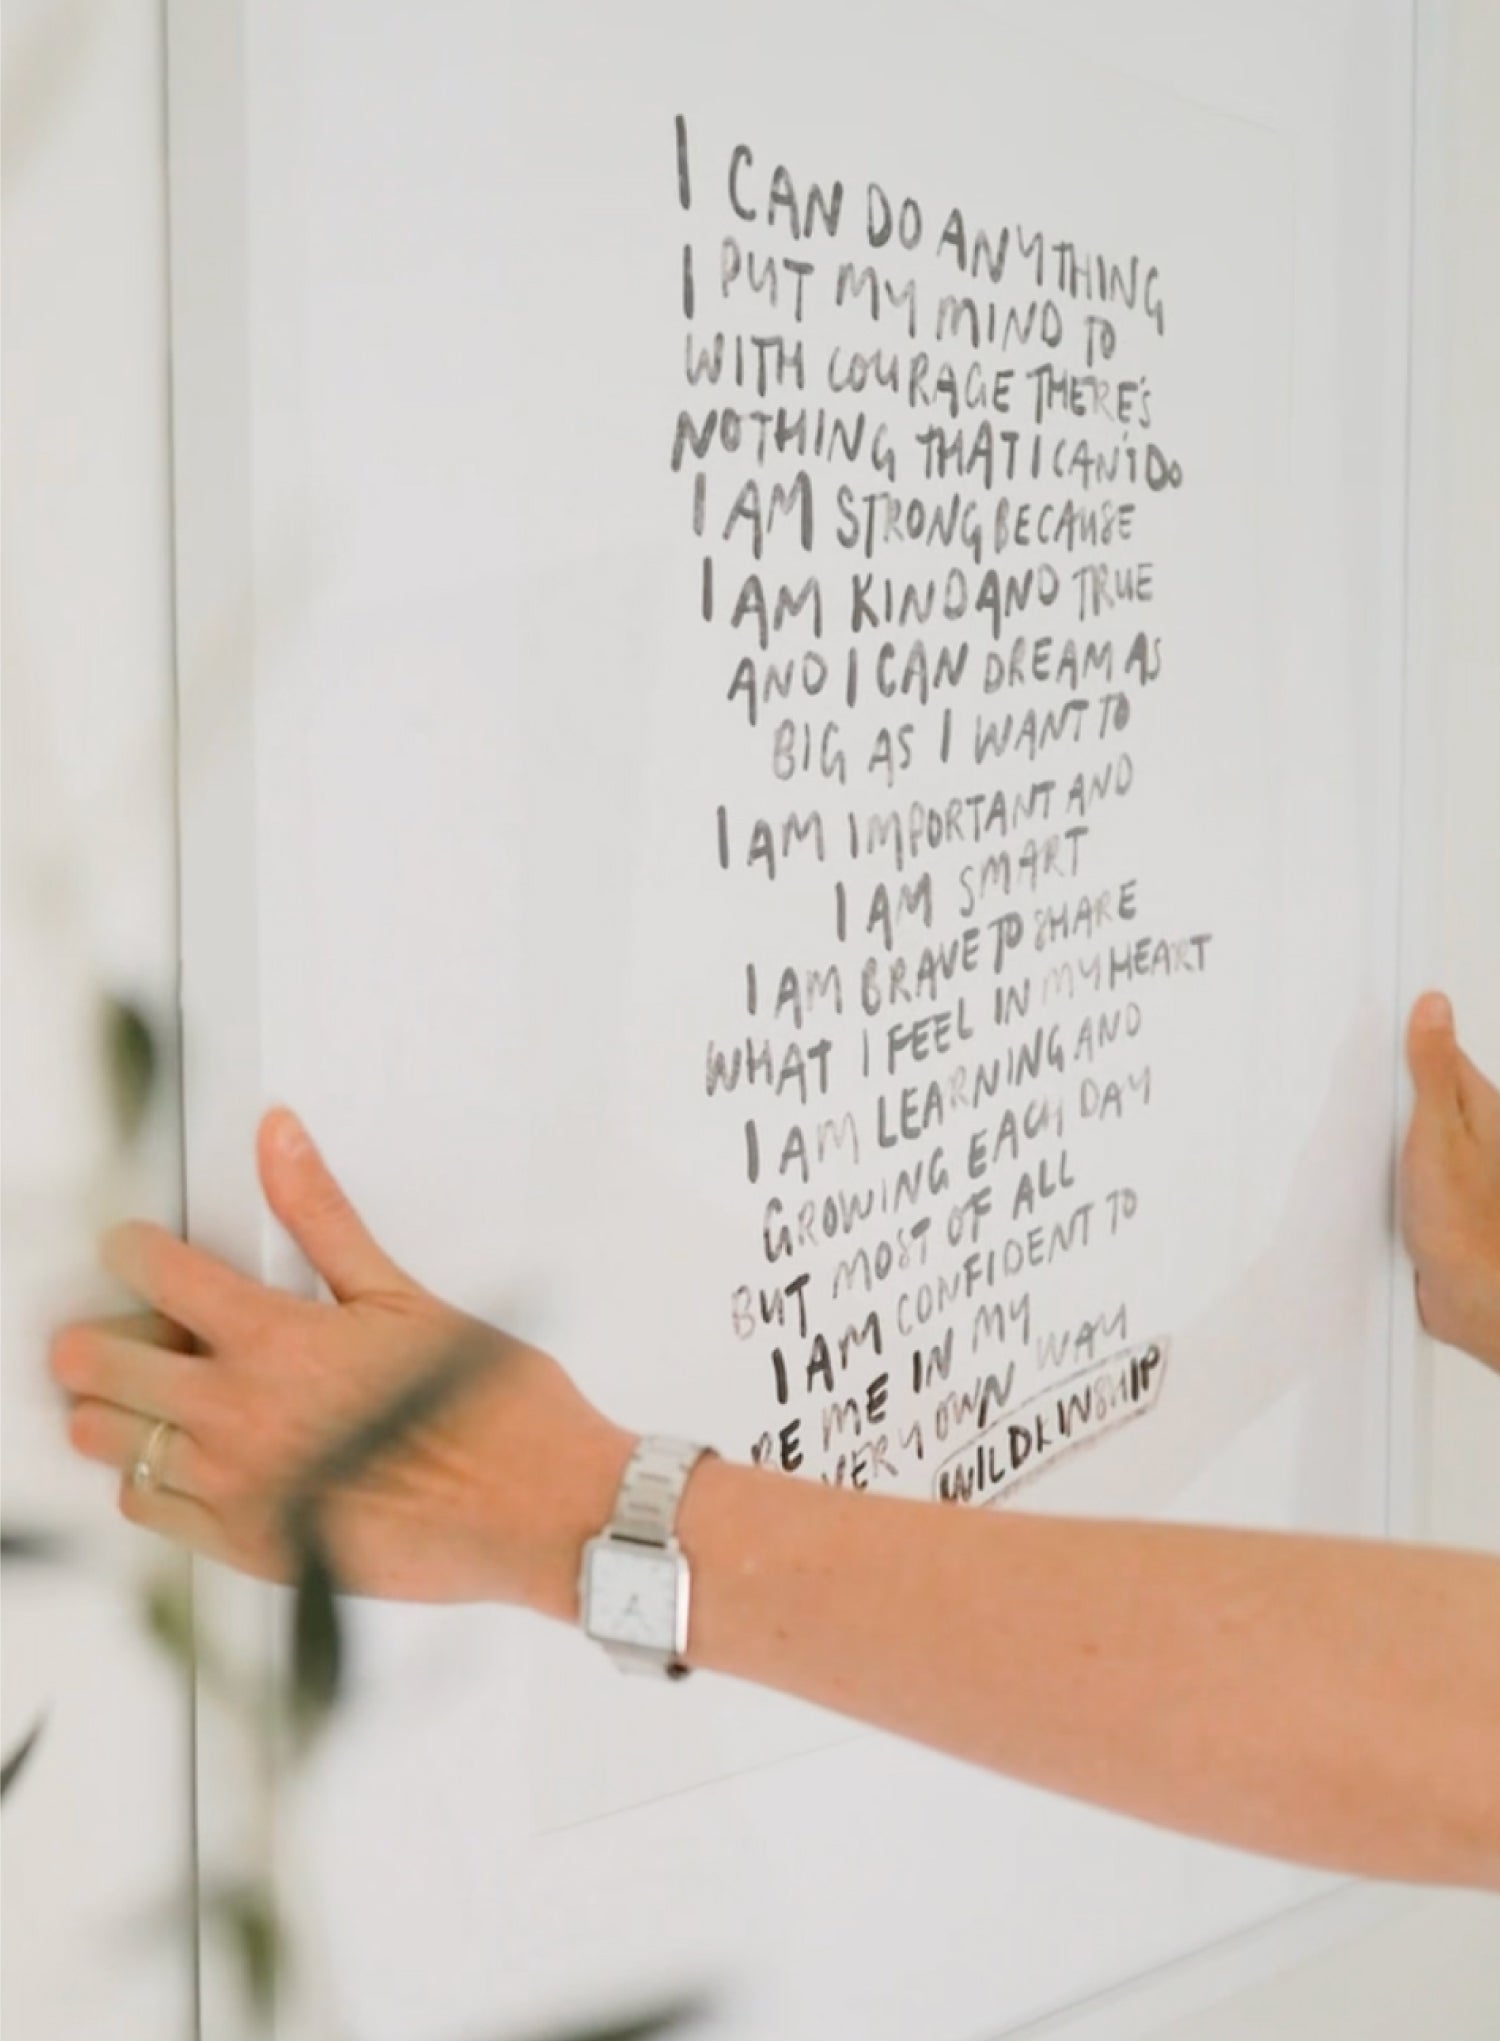 I CAN DO ANYTHING
I PUT MY MIND TO
WITH COURAGE THERE'S
NOTHING THAT I CAN'T DO
I AM STRONG BECAUSE
I AM KIND AND TRUE
AND I CAN DREAM AS
BIG AS I WANT TO
I AM IMPORTANT AND
I AM SMART
I AM BRAVE TO SHARE
WHAT I FEEL IN MY HEART
I AM LEARNING AND
GROWING EACH DAY
BUT MOST OF ALL
I AM CONFIDENT TO
BE ME IN MY
VERY OWN WAY
WILDLINSHIP